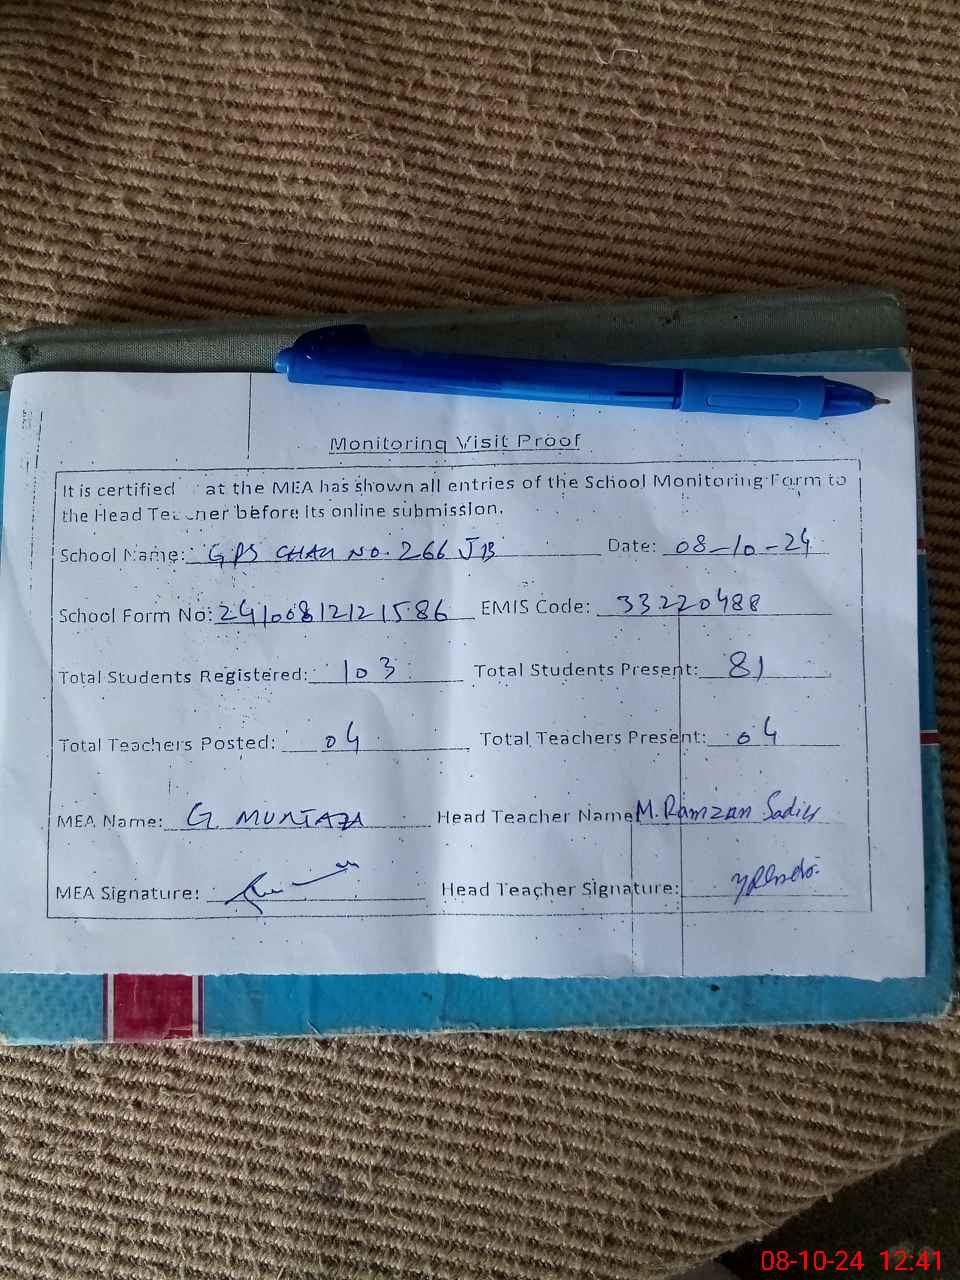 Monitoring Visit Proof
It is certified at the MEA has shown all entries of the School Monitoring Form to
the Head Teacher before its online submission.
School Name: GPS CHAK NO. 266 JB Date: 08-10-24
School Form No: 24100812121586 EMIS Code: 33220488
Total Students Registered: 103 Total Students Present: 81
Total Teachers Posted: 04 Total Teachers Present: 04
MEA Name: G. MURTAZA Head Teacher Name M. Ramzan Sadiq
MEA Signature: Head Teacher Signature:
08-10-24 12:41